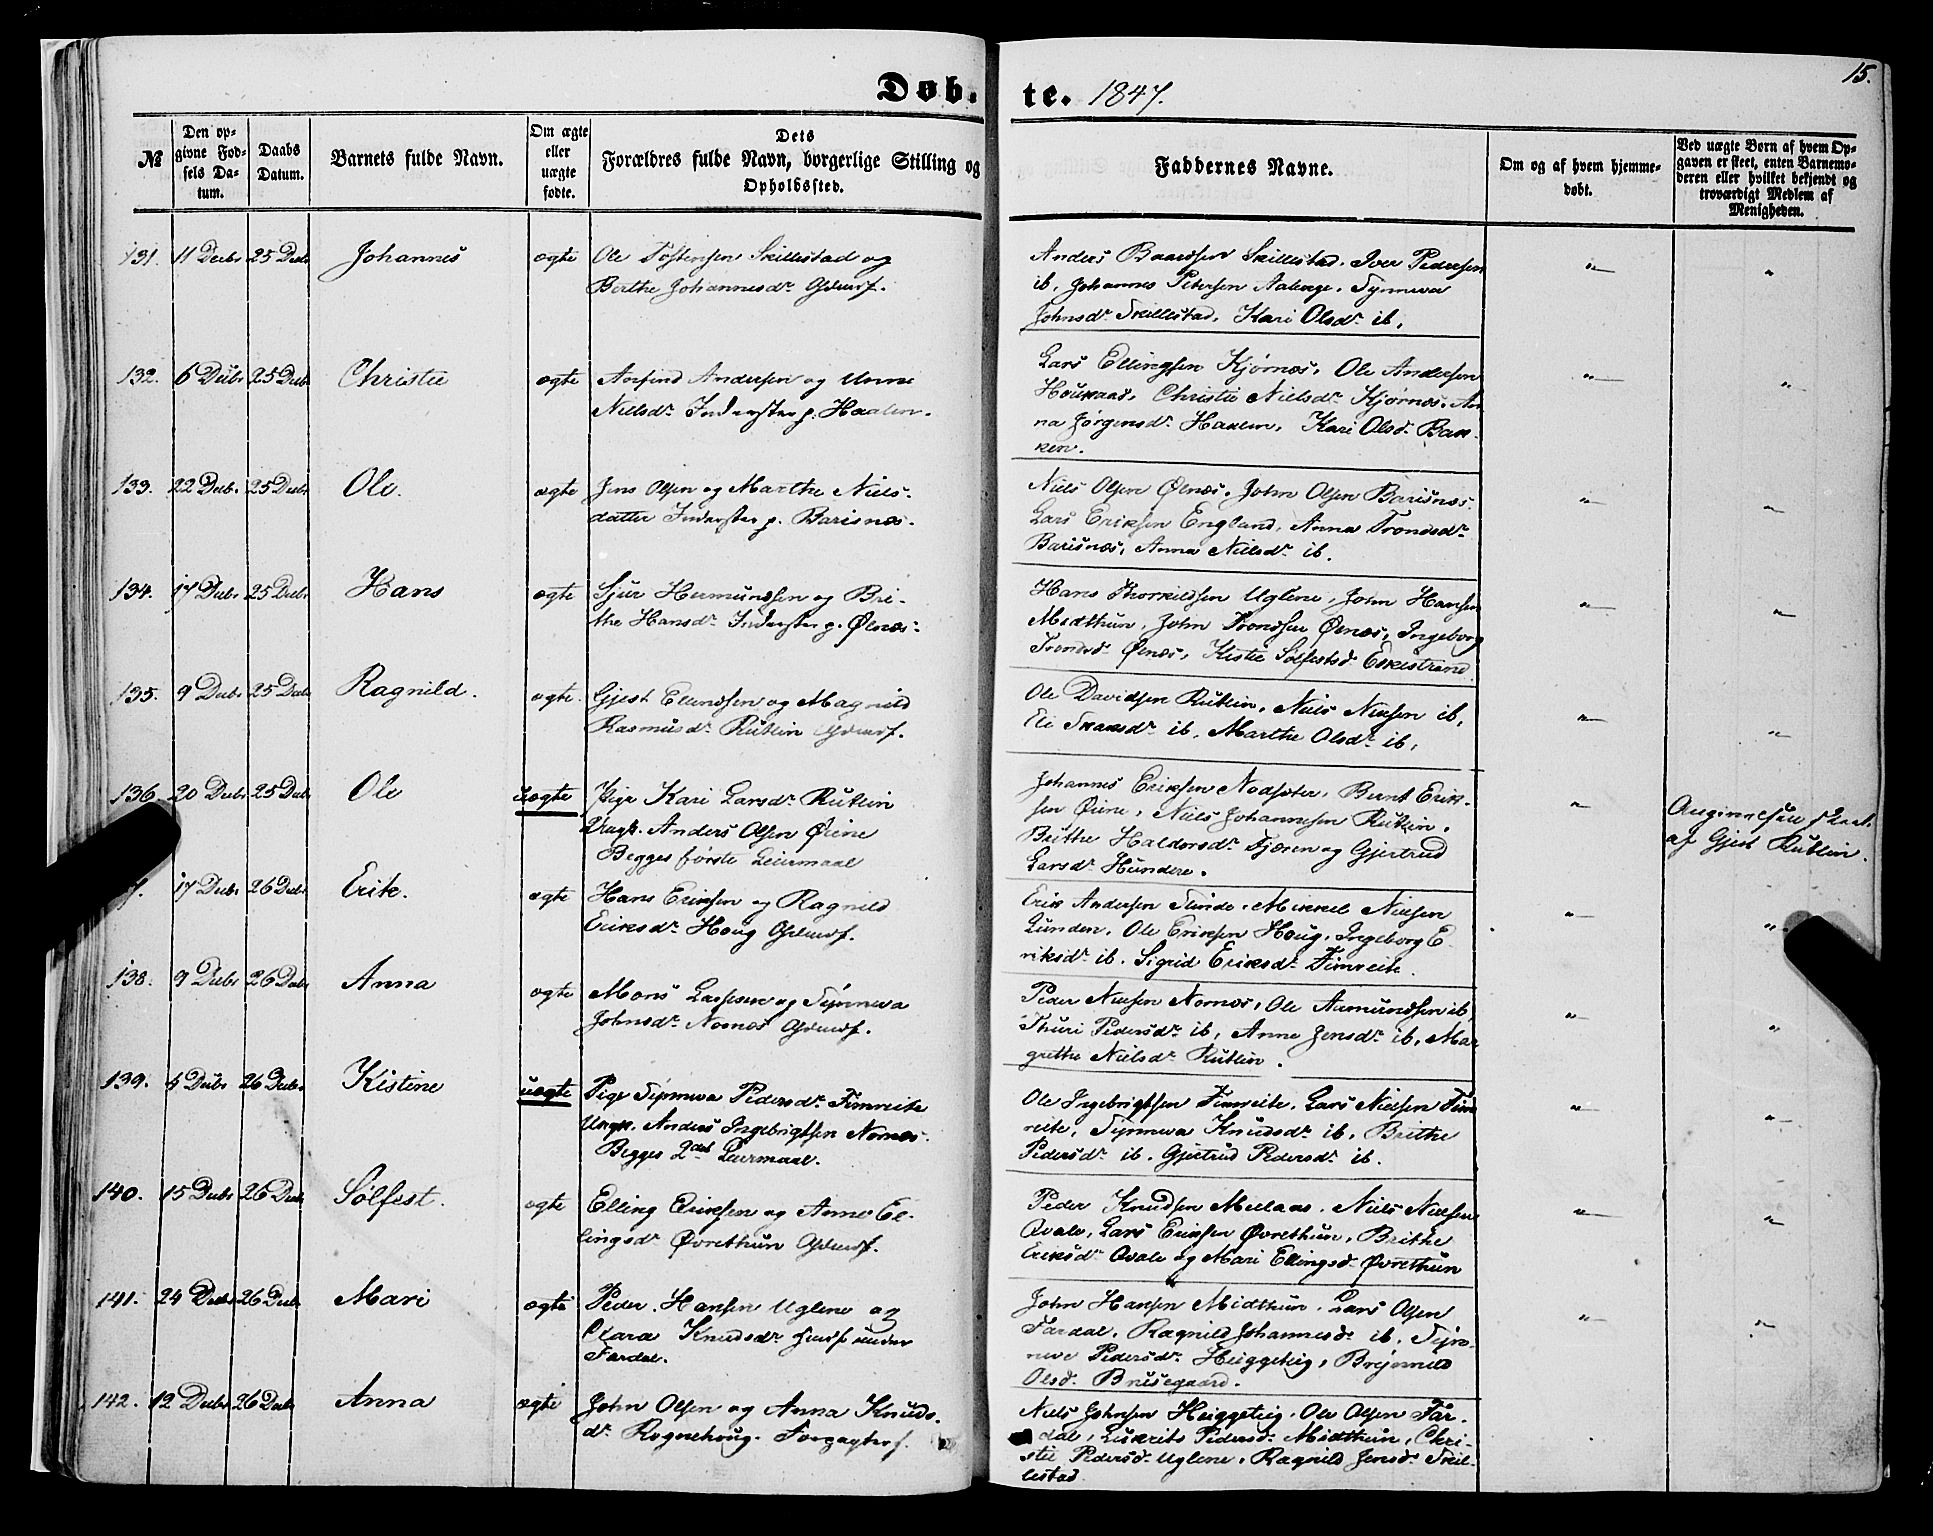 Døb-
te. 1847.
15.
№
Den op-
givne Fød-
sels Da-
tum.
Daabs
Datum.
Barnets fulde Navn.
Om ægte
eller
uægte
fødte.
Dets
Forældres fulde Navn, borgerlige Stilling og
Opholdssted.
Faddernes Navne.
Om og af hvem hjemme-
døbt.
Ved uægte Børn af hvem Op-
gaven er skeet, enten Barnemo-
deren eller hvilket bekjendt og
troværdigt Medlem af
Menigheden.
131. 11 Decbr 25 Decbr Johannes ægte
Ole Tostensen Skillestad og
Berthe Johannesdr Gdmdf.
Anders Baardsen Skillestad. Iver Pedersen
ib, Johannes Petersen Aaberge. Synneva
Johnsdr Skillestad, Kari Olsdr ib.
132. 6 Decbr 25 Decbr Christie ægte
Arfind Andersen og Unne
Nielsdr Inderster p. Haalen.
Lars Ellingsen Kjørnæs, Ole Andersen
Houkaas. Christie Nielsdr Kjørnæs. An-
na Jørgensdr Haalen, Kari Olsdr Bak-
ken.
133. 22 Decbr. 25 Decbr Ole. ægte
Jens Olsen og Marthe Niels-
datter Inderster p. Barisnæs.
Niels Olsen Ølnæs. John Olsen Barisnæs.
Lars Eriksen England, Anna Trondsdr
Barisnæs, Anna Nielsdr ib.
134. 17 Decbr 25 Decbr Hans ægte
Sjur Hermundsen og Bri-
the Hansdr Inderster p. Ølnæs.
Hans Thorkildsen Uglene, John Hansen
Midthun, John Trondsen Ølnæs, Ingeborg
Trondsd Ølnæs, Kistie Sølfestsd Eskestrand
135. 9 Decbr 25 Decbr Ragnild. ægte.
Gjest Ellendsen og Magnild
Rasmusdr Rutlin Gdmdf.
Ole Davidsen Rutlin, Niels Nielsen ib,
Eli dr ib, Marthe Olsdr ib,
136 20 Decbr 25 Decbr Ole uægte
Pige Kari Larsdr Rutlin
Ungk. Anders Olsen Øiene
Begges første Leiermaal
Johannes Eriksen Nodsæter, Bernt Erik-
sen Øiene, Niels Johannesen Rutlin,
Brithe Haldorsdr Fjæren og Gjertrud
Larsdr Hundere.
Angivelsen skeet
af Gjest Rutlin.
7. 17 Decbr 26 Decbr Erik. ægte
Hans Eriksen og Ragnild
Eriksdr Houg Gdmdf.
Erik Andersen Slinde. Mikkel Nielsen
Lunden, Ole Eriksen Houg, Ingeborg E-
riksdr ib. Sigrid Eriksdr Fimreite.
138. 9 Decbr 26 Decbr Anna ægte
Mons Larsen og Synneva
Johnsdr Nornæs Gdmdf.
Peder Nielsen Nornæs, Ole Aamundsen ib,
Thuri Pedersdr ib, Anne Jensdr ib, Mar
grethe Nielsdr Rutlin.
139. 5 Decbr 26 Decbr Kistine uægte
Pige Synneva Pedersdr Fimreite
Ungk. Anders Ingebrigtsen Nornæs.
Begges 2det Leiermaal.
Ole Ingebrigtsen Fimreite. Lars Nielsen Fim
reite, Synneva Knudsdr ib, Brithe
Pedersdr ib. Gjertrud Pedersdr ib.
140. 15 Decbr 26 Decbr Sølfest. ægte
Elling Eriksen og Anne El-
lingsdr Øvrethun Gdmdf.
Peder Knudsen Meelaas. Niels Nielsen
Qvale, Lars Eriksen Øvrethun, Brithe
Eriksdr Qvale og Mari Ellingsd Øvrethun
141. 24 Decbr 26 Decbr Mari ægte
Peder Hansen Uglene og
Clara Knudsdr under
Fardal.
John Hansen Midthun. Lars Olsen
Fardal. Ragnild Johannesdr ib. Syn-
neve Pedersdr Heiggeteig, Brynnild
Olsd Bruaegaard.
142. 12 Decbr 26 Decbr Anna ægte
John Olsen og Anna Knuds-
dr Rognehoug. Forpagterf.
Niels Johnsen Heiggeteig. Ole Olsen Far-
dal, Lukrits Pedersdr Midthun, Chri-
stie Pedersdr Uglene. Ragnild Jensdr Skil-
lestad